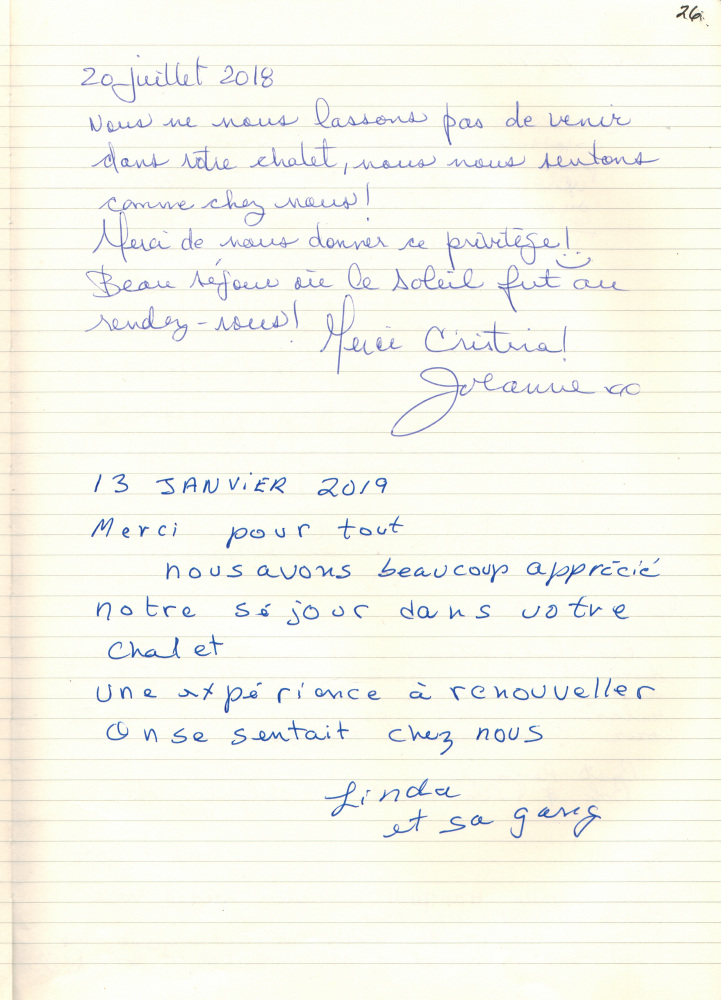 26.
20 juillet 2018
Nous ne nous lassons pas de venir
dans votre chalet, nous nous sentons
comme chez nous!
Merci de nous donner ce privilège!
Beau séjour où le soleil fut au
rendez-vous!
Merci Cristina!
Johanne xo
13 JANVIER 2019
Merci pour tout
nous avons beaucoup apprécié
notre séjour dans votre
chalet
une expérience à renouveller
On se sentait chez nous
Linda
et sa gang